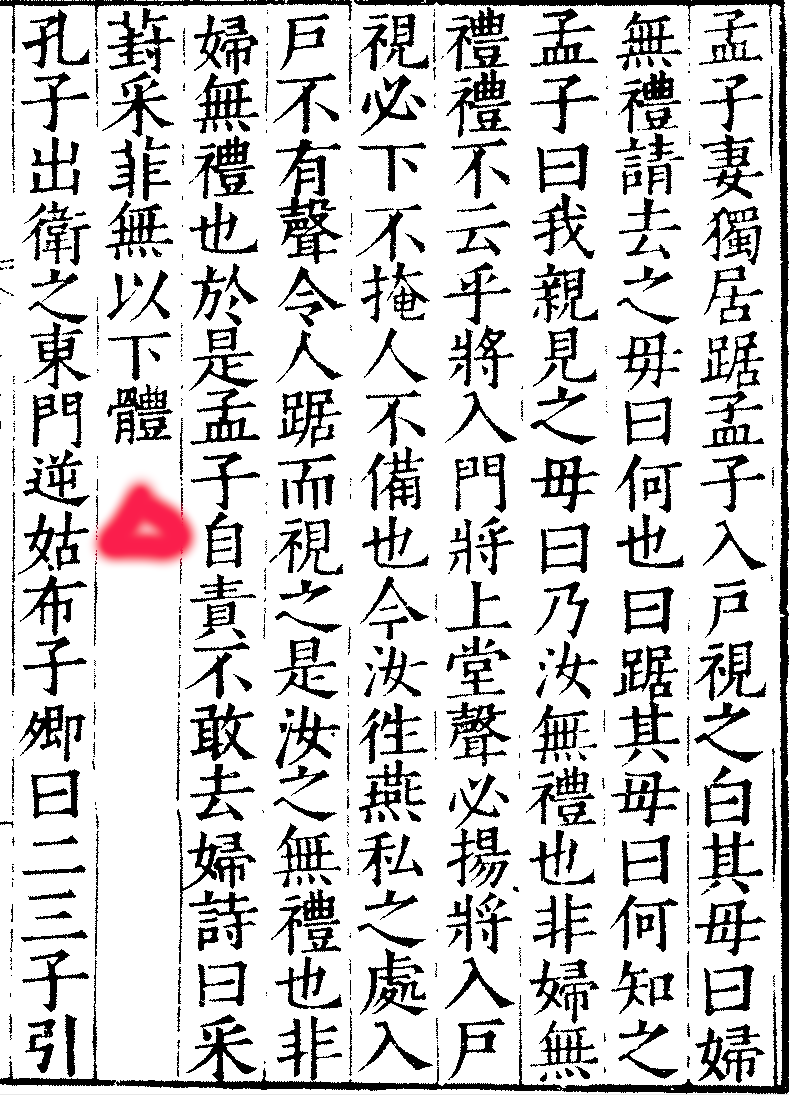 孟子妻獨居踞孟子入戸視之白其毋曰婦
無禮請去之毋曰何也曰踞其毋曰何知之
孟子曰我親見之毋曰乃汝無禮也非婦無
禮禮不云乎將入門將上堂聲必揚將入戸
視必下不掩人不備也今汝徃燕私之處入
戸不有聲令人踞而視之是汝之無禮也非
婦無禮也於是孟子自責不敢去婦詩曰采
葑采菲無以下體
孔子出衛之東門逆姑布子卿曰二三子引